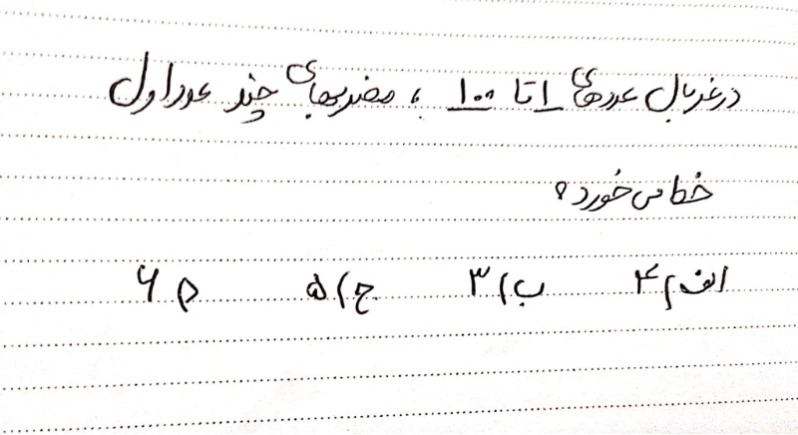 در غربال عددهای ۱ تا ۱۰۰ ، مضرب‌های چند عدد اول
خط می‌خورد ؟
الف) ۴ ب) ۳ ج) ۵ د) ۶